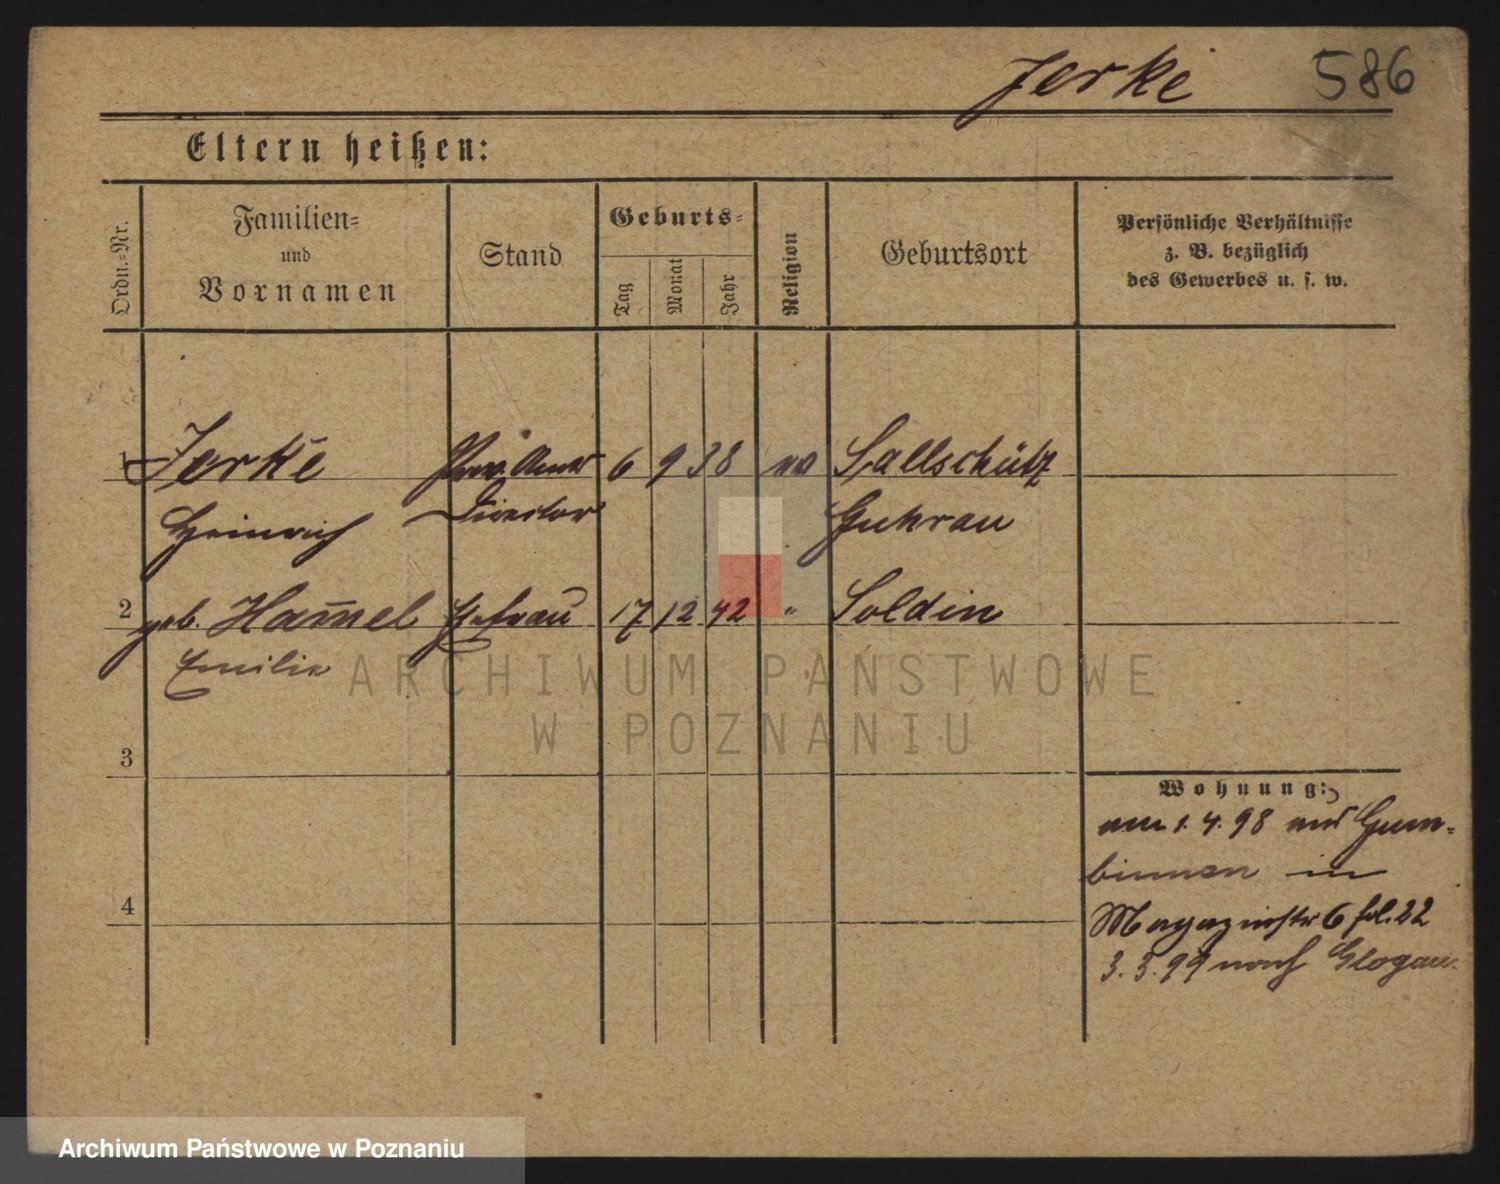 Jerke 586
Eltern heißen:
Ordn.=Nr.
Familien=
und
Vornamen
Stand
Geburts=
Tag
Monat
Jahr
Religion
Geburtsort
Persönliche Verhältnisse
z. B. bezüglich
des Gewerbes u. s. w.
1 Jerke Prov. Amts 6 9 38 Sallschütz
Heinrich Director Guhrau
2 geb. Ham̅el Ehefrau 17 12 42 " Soldin
Emilie
ARCHIWUM PAŃSTWOWE
W POZNANIU
3
Wohnung:
am 1. 4. 98 aus Gum=
binnen in
4
Magazinstr 6 fol. 22
3. 3. 99 nach Glogau.
Archiwum Państwowe w Poznaniu